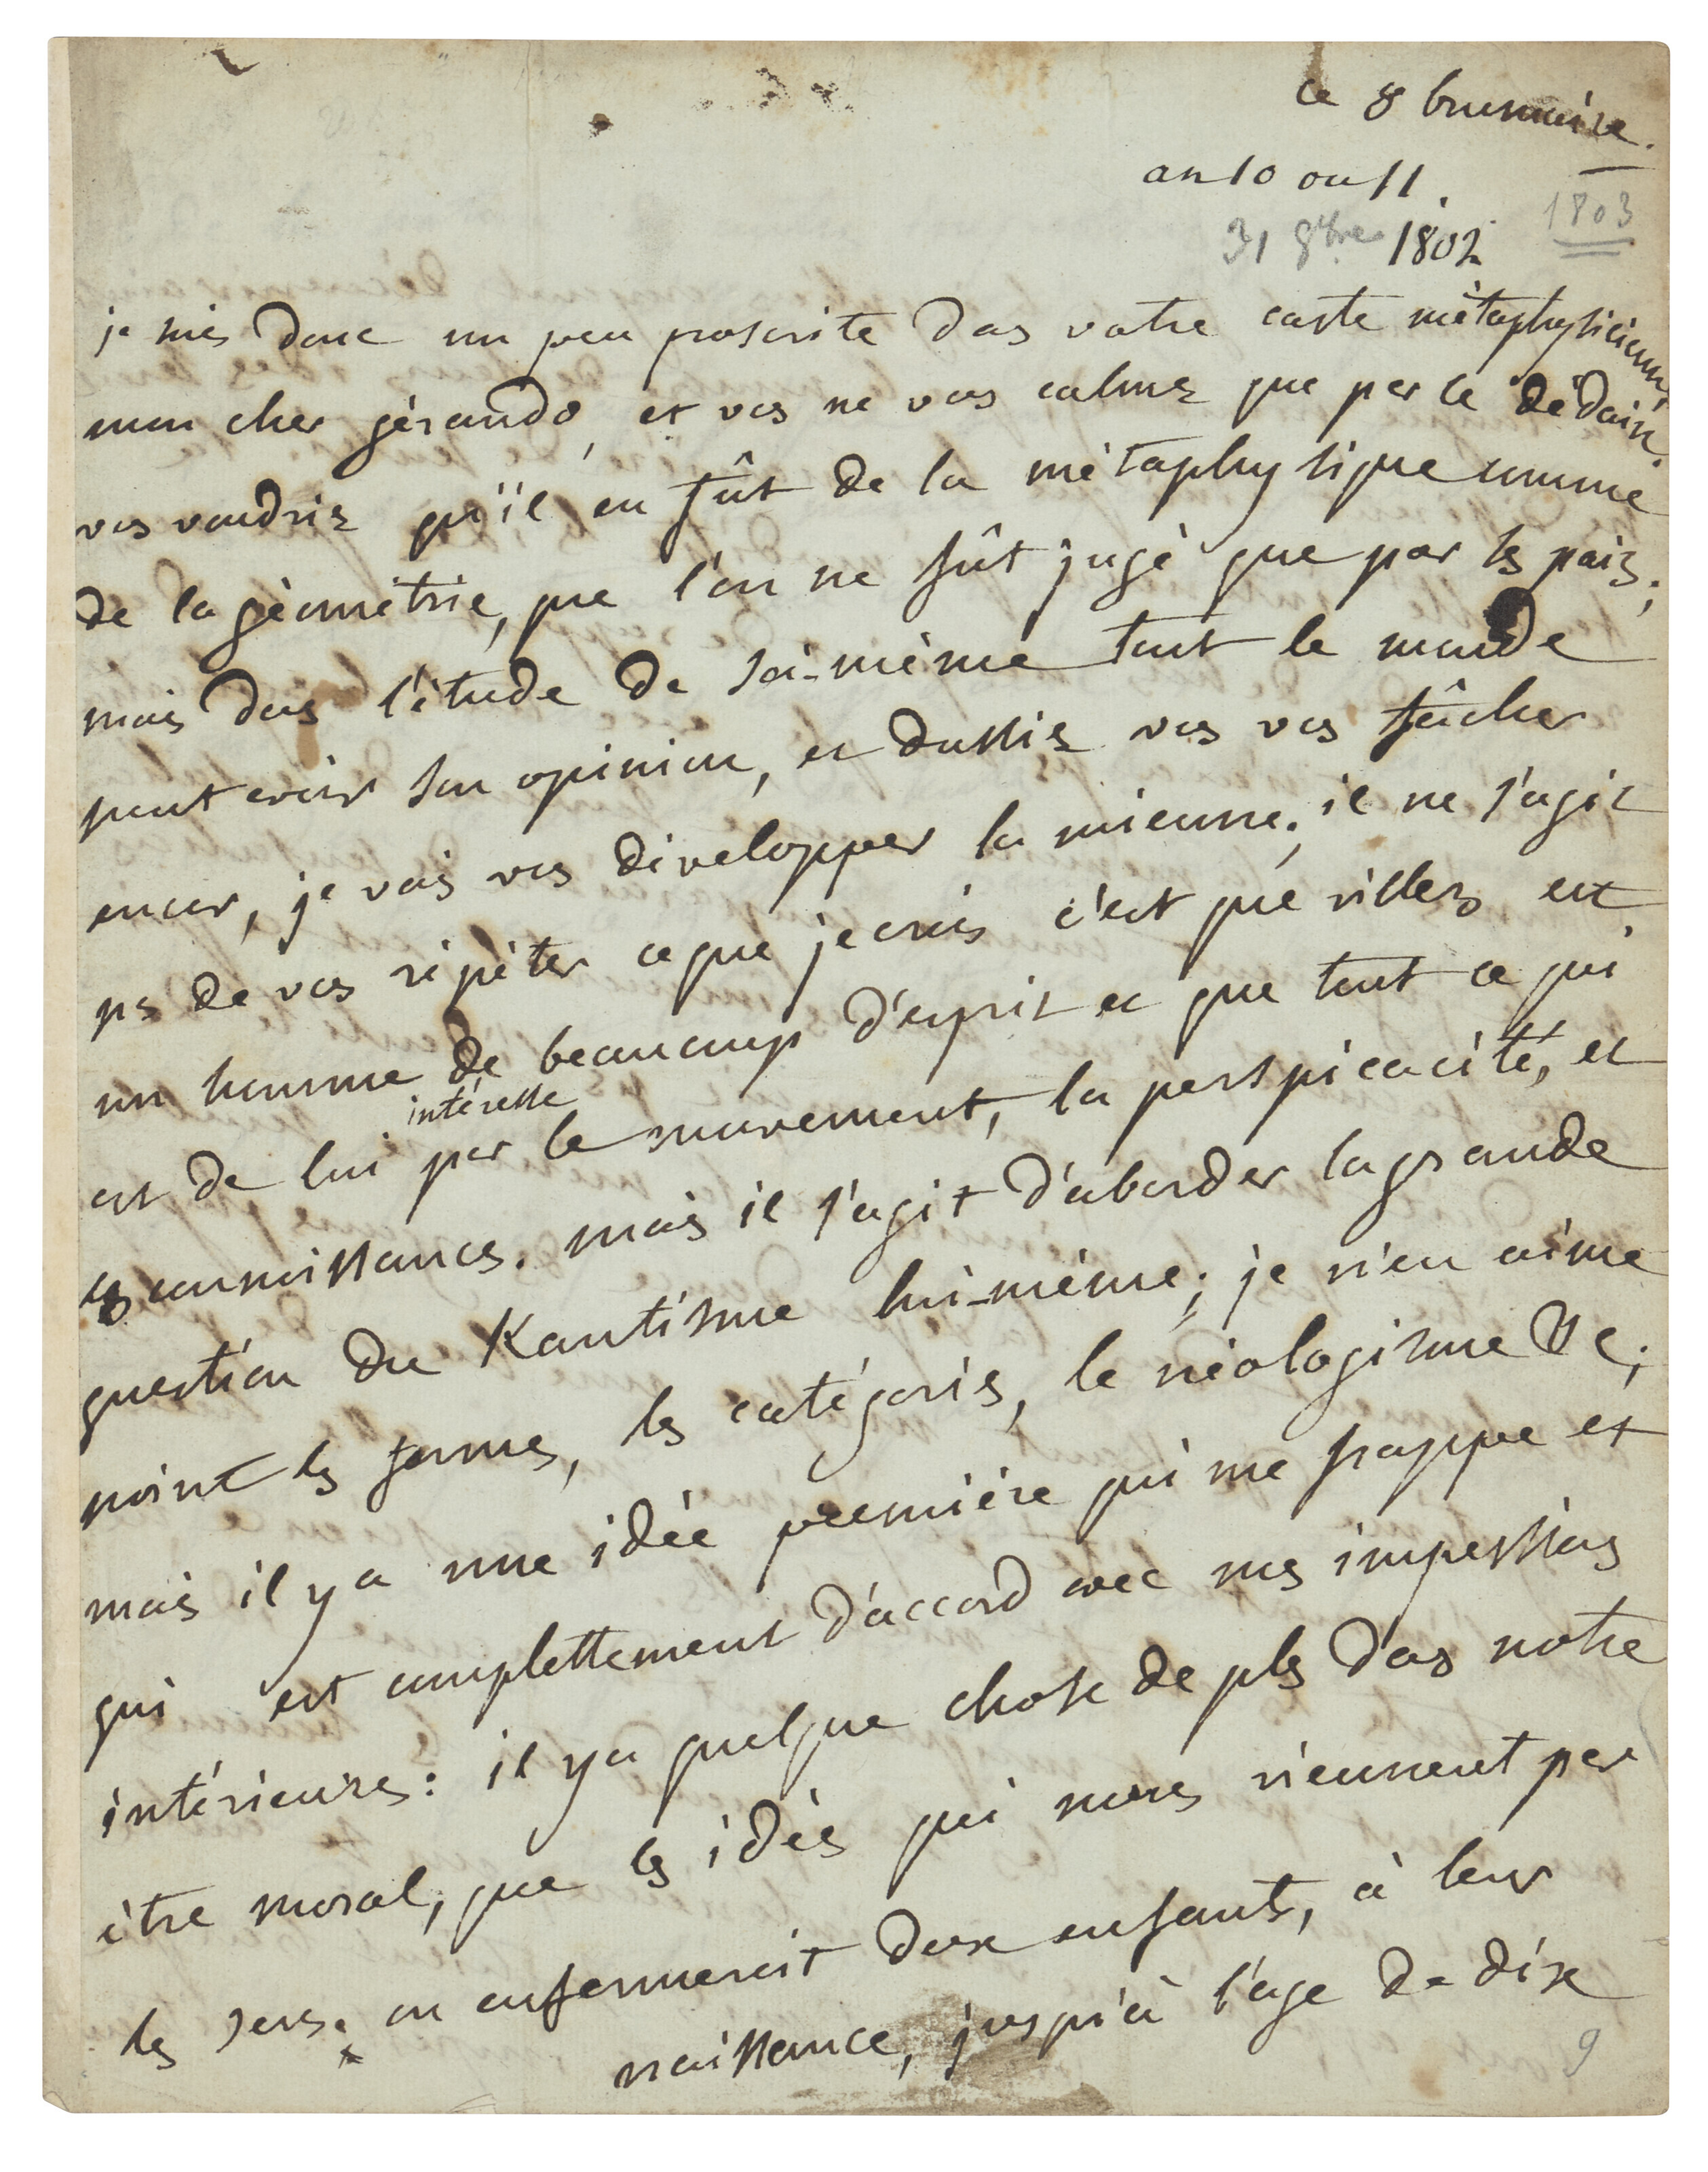 ce 8 brumaire.
an 10 ou 11.
1803
31 8bre 1802
je suis donc un peu proscrite das votre caste métaphysicienne
mon cher gérando, et vos ne vos calmez que par le dédain.
vos voudriez qu'il en fût de la métaphysique comme
de la géométrie, que l'on ne fût jugé que par ls pairs;
mais das l'étude de soi-même tout le monde
peut avoir son opinion, et dussiez vos vos fâcher
encor, je vais vos développer la mienne; il ne s'agit
ps de vos répéter ce que je crois c'est que villers est
un homme de beaucoup d'esprit et que tout ce qui
intéresse
est de lui par le mouvement, la perspicacité, et
ls connoissances. mais il s'agit d'aborder la grande
question du Kantisme lui-même; je n'en aime
point ls formes, ls catégoris, le néologisme &c;
mais il y a une idée première qui me frappe et
qui est complettement d'accord avec ms impessions
intérieures: il y a quelque chose de pls das notre
être moral, que ls idées qui nous viennent par
ls sens; on enfermeroit deux enfants, à leur
naissance, jusqu'à l'age de dix
9